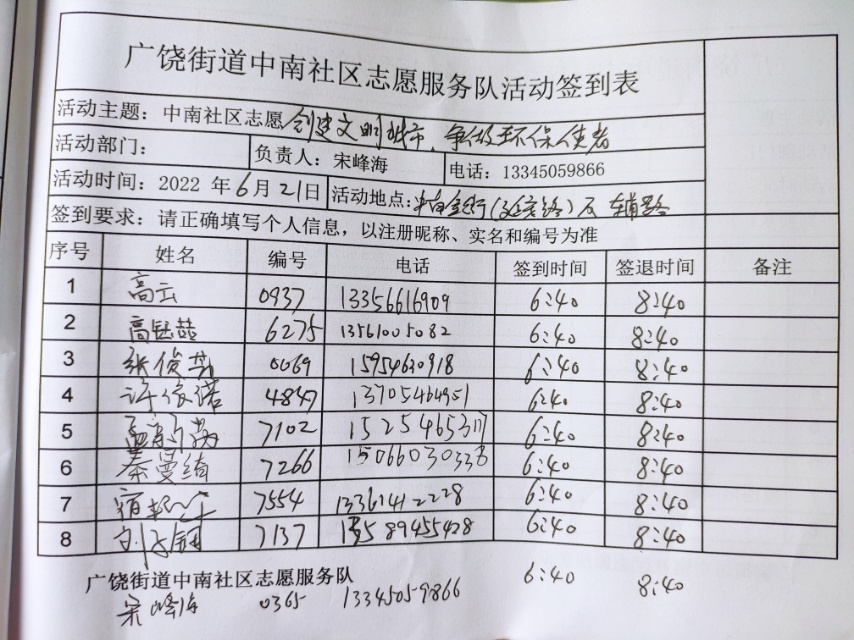 广饶街道中南社区志愿服务队活动签到表
活动主题：中南社区志愿创建文明城市、争做环保使者
活动部门： 负责人：宋峰海 电话：13345059866
活动时间：2022 年6月21日 活动地点：银行（延安路）及 辅路
签到要求：请正确填写个人信息，以注册昵称、实名和编号为准
序号 姓名 编号 电话 签到时间 签退时间 备注
1 高云 0937 13356616909 6:40 8:40
2 高钰喆 6275 13561005082 6:40 8:40
3 张俊英 0069 15954630918 6:40 8:40
4 许俊诺 4847 13705464951 6:40 8:40
5 7102 15254653117 6:40 8:40
6 秦曼绮 7266 15066030336 6:40 8:40
7 7554 13361412228 6:40 8:40
8 7137 15589455428 6:40 8:40
广饶街道中南社区志愿服务队
宋峰海 0365 13345059866 6:40 8:40